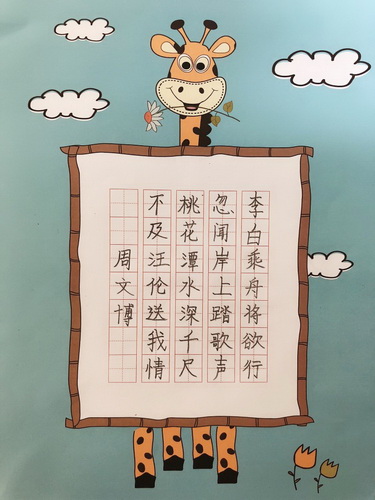 李白乘舟将欲行
忽闻岸上踏歌声
桃花潭水深千尺
不及汪伦送我情
周文博